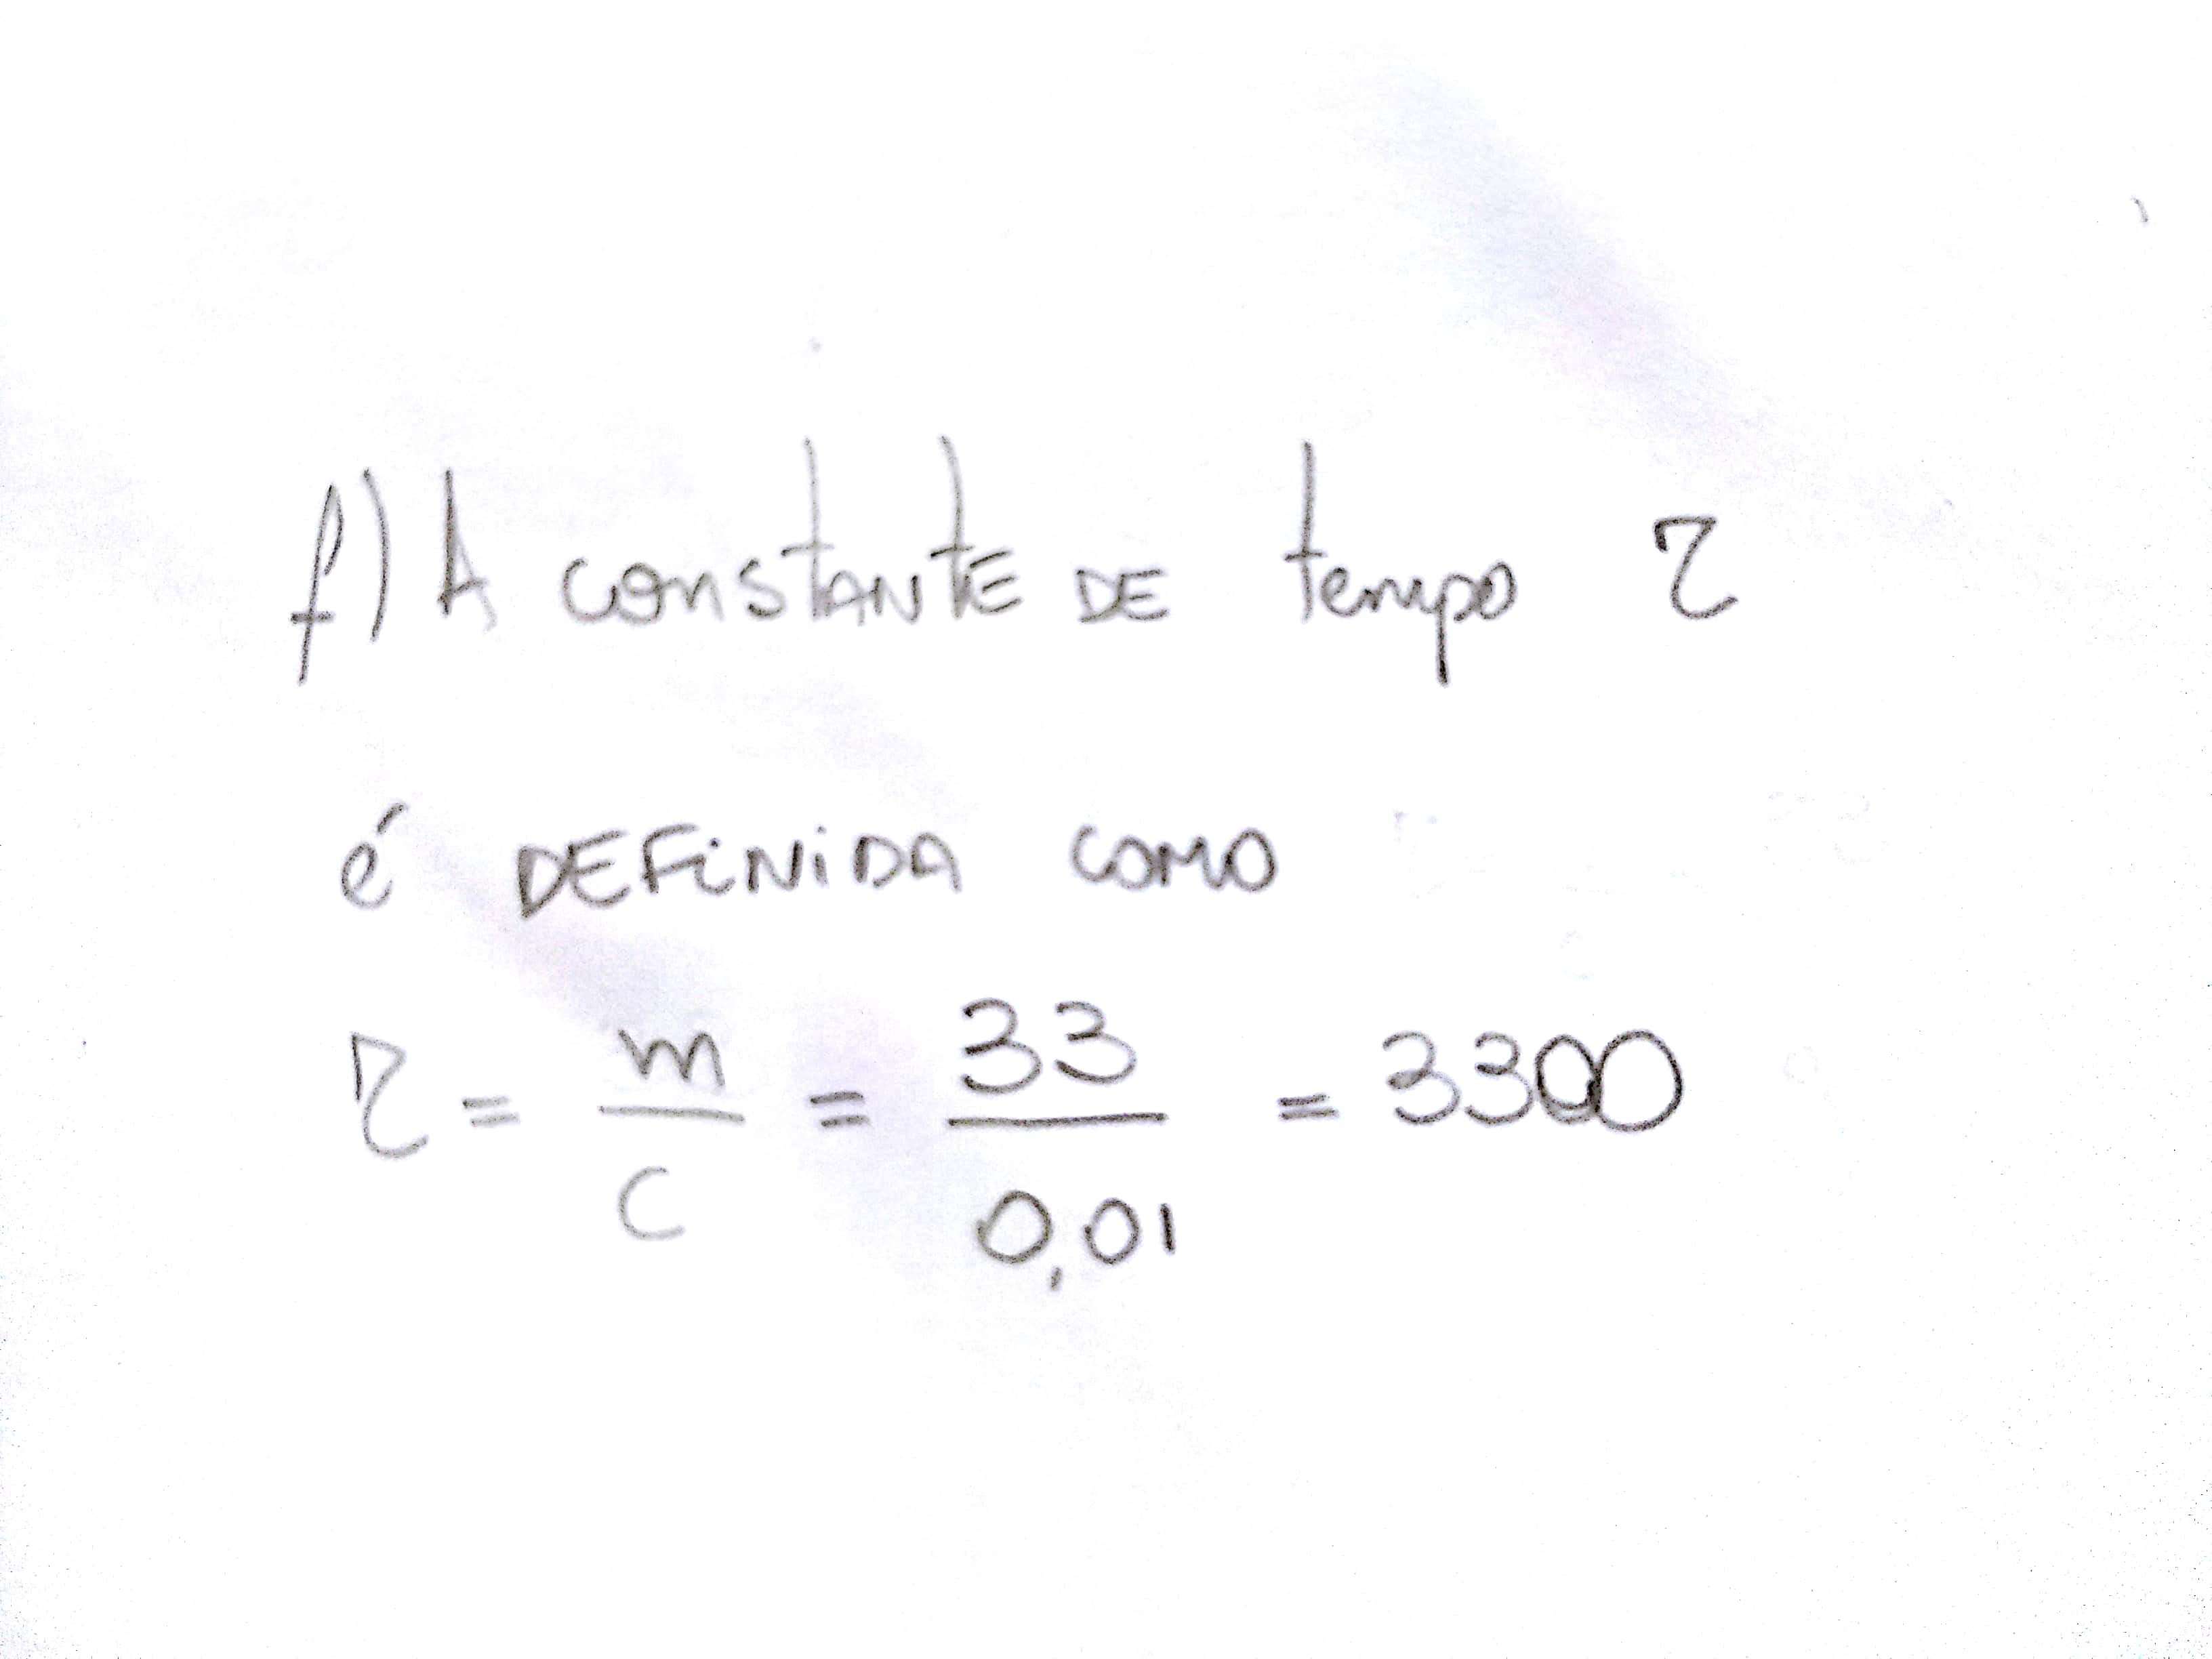 f) A constANtE DE tempo τ
é DEFiNiDA como
τ = m/c = 33/0,01 = 3300